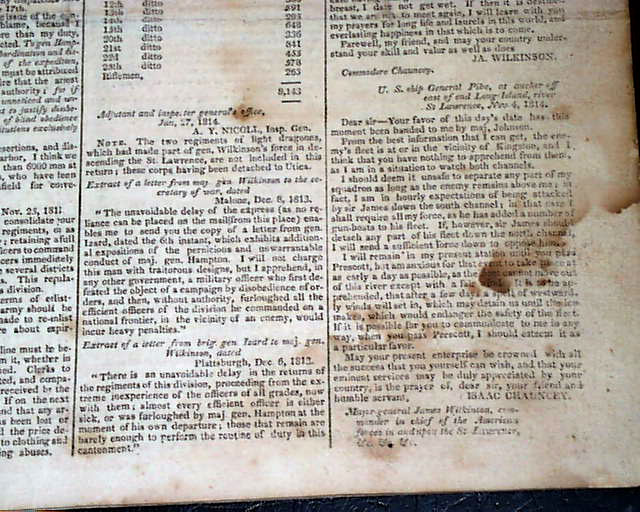 17th.
blame, because I
ore than my duty,
of the expedition,
must be attributed
ire that the arrest
authority; for if
of blind obedience
tutions exclusively
sertions, and dis-
arbor, I think we
than 6000 men at
who have been
field for
Nov. 25, 1811.
consolidate your
regiments, or as
retaining full
icers to command
cers immediately
several districts
This regula-
division.
terms of enlist-
army should be
made to re-enlist
re about expir-
line must be
m it, whether in
ed. Clerks to
ted, and
received by the
If on the next
nd that any ar-
as been lost or
d the price de-
to clothing and
ing abuses.
12th ditto
13th ditto
20th ditto
21st ditto
22d ditto
25th ditto
Riflemen,
295
648
336
841
455
578
263
8,143
Adjutant and inspector general's office,
Jan. 27, 1814.
A. Y. NICOLL, Insp. Gen.
NOTE. The two regiments of light dragoons,
which had made part of gen. Wilkinson's force in de-
scending the St. Lawrence, are not included in this
return; these corps having been detached to Utica.
Extract of a letter from maj gen. Wilkinson to the se-
cretary of war, dated
Malone, Dec. 8, 1813.
"The unavoidable delay of the express (as no re-
liance can be placed on the mail from this place) ena-
bles me to send you the copy of a letter from gen.
Izard, dated the 6th instant, which exhibits addition-
al expositions of the pernicious and unwarrantable
conduct of maj. gen. Hampton. I will not charge
this man with traitorous designs, but I apprehend, in
any other government, a military officer who first de-
feated the object of a campaign by disobedience of or-
ders, and then, without authority, furloughed all the
efficient officers of the division he commanded on a
national frontier, in the vicinity of an enemy, would
incur heavy penalties."
Extract of a letter from brig. gen. Izard to maj. gen.
Wilkinson, dated
Plattsburg, Dec. 6, 1813.
"There is an unavoidable delay in the returns of
the regiments of this division, proceeding from the ex-
treme inexperience of the officers of all grades, now
with them; almost every efficient officer is either
sick, or was furloughed by maj. gen. Hampton at the
moment of his own departure; those that remain are
barely enough to perform the routine of duty in this
cantonment."
breast, I date not get wet. If then it is
that we are not to meet again, I will leave with you
my prayers for your life and laurels in this world, and
everlasting happiness in that which is to come.
Farewell, my friend, and may your country under-
stand your skill and valor as well as does
JA. WILKINSON.
Commodore Chauncey.
U. S. ship General Pike, at anchor off
east end of Long-Island, river
St. Lawrence, Nov. 4, 1814.
Dear sir—Your favor of this day's date has this
moment been handed to me by maj. Johnson.
From the best information that I can get, the ene-
my's fleet is at or in the vicinity of Kingston, and I
think that you have nothing to apprehend from them,
as I am in a situation to watch both channels.
I should deem it unsafe to separate any part of my
squadron as long as the enemy remains above me; in
fact, I am in hourly expectations of being attacked
by sir James down the south channel; in that case I
shall require all my force, as he has added a number of
gun-boats to his fleet. If, however, sir James should
detach any part of his fleet down the north channel,
I will send a sufficient force down to oppose him.
I will remain in my present station until you pass
Prescott, but am anxious for that event to take place at
as early a day as possible, as the fleet cannot move out
of this river except with a It is to be ap-
prehended, that after a few days a spell of westward-
ly winds will set in, which may detain us until the ice
makes, which would endanger the safety of the fleet.
If it is possible for you to communicate to me in any
way, when you pass Prescott, I should esteem it as
a particular favor.
May your present enterprise be crowned with all
the success that you yourself can wish, and that your
eminent services may be duly appreciated by your
country, is the prayer of, dear sir, your friend and
humble servant, ISAAC CHAUNCEY.
Major-general James Wilkinson, com-
mander in chief of the American
forces in and upon the St Lawrence,
&c. &c. &c.